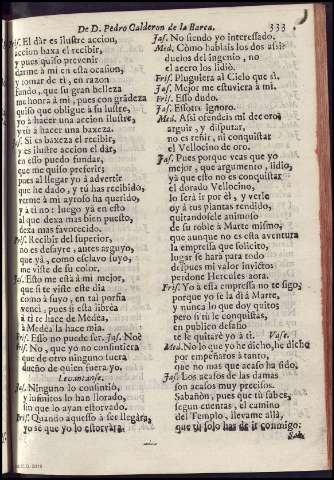 De D. Pedro Calderon de la Barca. 333
Fris. El dàr es ilustre accion,
accion baxa el recibir,
y pues quiso prevenir
darme à mi en esta ocasion,
y tomar de ti, en razon
fundo, que su gran belleza
me honra à mi, pues con grãdeza
quiso que obligue à su lustre,
yo à hacer una accion ilustre,
y tù à hacer una baxeza.
Jas. Si es baxeza el recibir,
y es ilustre accion el dàr,
en esso puedo fundar,
que me quiso preferir;
pues al llegar yo à advertir
que he dado, y tú has recibido,
verme à mi ayroso ha querido,
y à ti no: luego yá en esto
al que dexa mas bien puesto,
dexa mas favorecido.
Fris. Recibir del superior,
no es desayre, antes arguyo,
que yá, como esclavo suyo,
me viste de su color.
Jas. Esto me està à mi mejor,
que si te viste este dia
como à suyo, en tal porfia
venci, pues si esta librèa
à ti te hace de Medéa,
à Medéa la hace mia.
Fris. Esso no puede ser. Jas. Noè
Fris. No, que yo no consintiera
que de otro ninguno fuera
dueño de quien fuera yo.
Levantanse.
Jas. Ninguno lo consintiò,
y infinitos lo han llorado,
sin que lo ayan estorvado.
Fris. Quando aquesso à ser llegára,
yo sè que yo lo estorvàra.
Jas. No siendo yo interessado.
Med. Còmo hablais los dos assi?
duelos del ingenio, no
el acero los lidiò.
Fris. Pluguiera al Cielo que sì.
Jas. Mejor me estuviera à mi.
Fris. Esso dudo.
Jas. Essotro ignoro.
Med. Assi ofendeis mi decoro?
arguir, y disputar,
no es reñir, ni conquistar
el Vellocino de oro.
Jas. Pues porque veas que yo
mejor, que argumento, lidio,
yà que esto no es conquistar
el dorado Vellocino,
lo serà ir por èl, y verle
oy à tus plantas rendido,
quitandosele animoso
de su roble à Marte mismo;
que aunque no es esta aventura
la empressa que solicito,
lugar se harà para todo
despues mi valor invictos
perdone Hercules aora.
Fris. Yo à essa empressa no te sigo;
porque yo se la dì à Marte,
y nunca lo que doy quito;
pero si tú le conquistas,
en publico desafio
te le quitarè yo à ti. Vase.
Med. No lo que yo he dicho, he dicho
por empeñaros à tanto,
que no mas que acaso ha sido.
Jas. Los acasos de las damas
son acasos muy precisos.
Sabañòn, pues que tù sabes,
segun cuentas, el camino
del Templo, llevame allà,
que tù solo has de ir conmigo.